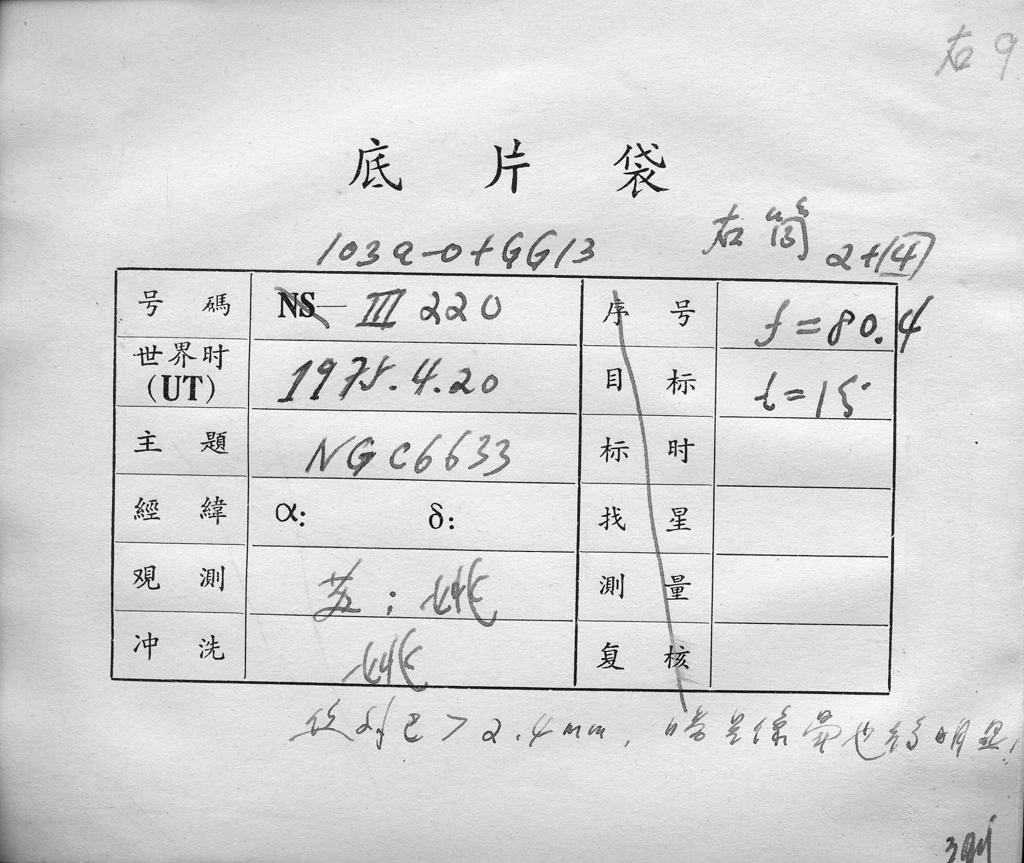 右9
底片袋
103a-0+GG13 右筒 2+14
号碼 NS— III 220 序号 f=80.4
世界时(UT) 1975.4.20 目标 t=15
主題 NGC6633 标时
經緯 α: δ: 找星
观測 苏;姚 測量
冲洗 姚 复核
>2.4mm, 星像 也 明显